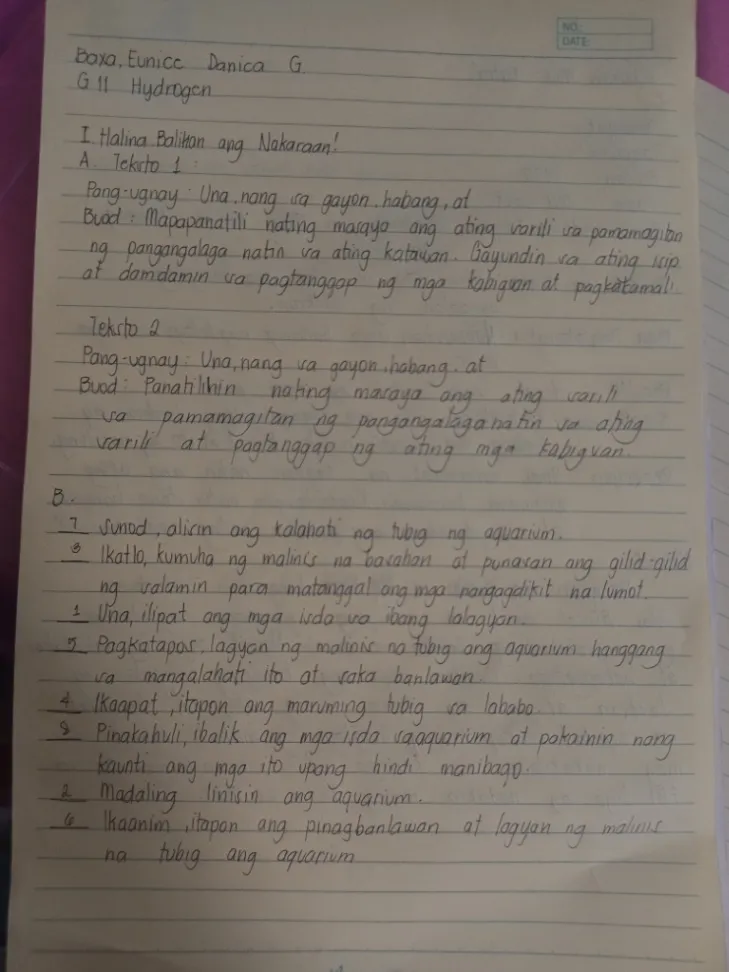 NO.:
DATE:
Baxa, Eunice Danica G.
G 11 Hydrogen
I. Halina Balikan ang Nakaraan!
A. Teksto 1 :
Pang-ugnay : Una, nang sa gayon, habang, at
Buod : Mapapanatili nating masaya ang ating sarili sa pamamagitan
ng pangangalaga natin sa ating katawan. Gayundin sa ating isip
at damdamin sa pagtanggap ng mga kabiguan at pagkakamali
Teksto 2
Pang-ugnay : Una, nang sa gayon, habang, at
Buod : Panatilihin nating masaya ang ating sarili
sa pamamagitan ng pangangalaga natin sa ating
sarili at pagtanggap ng ating mga kabiguan.
B.
7 Sunod, alisin ang kalahati ng tubig ng aquarium.
3 Ikatlo, kumuha ng malinis na basahan at punasan ang gilid-gilid
ng salamin para matanggal ang mga nangagdikit na lumot.
1 Una, ilipat ang mga isda sa ibang lalagyan.
5 Pagkatapos, lagyan ng malinis na tubig ang aquarium hanggang
sa mangalahati ito at saka banlawan.
4 Ikaapat, itapon ang maruming tubig sa lababo.
8 Pinakahuli, ibalik ang mga isda sa aquarium at pakainin nang
kaunti ang mga ito upang hindi manibago.
2 Madaling linisin ang aquarium.
6 Ikaanim, itapon ang pinagbanlawan at lagyan ng malinis
na tubig ang aquarium